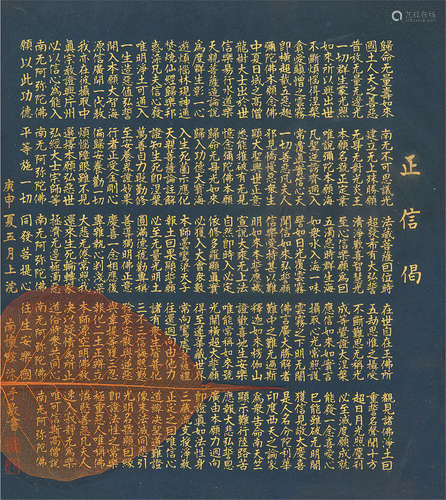 正信偈
歸命無量壽如來 南無不可思議光 法藏菩薩因位時 在世自在王佛所 覩見諸佛淨土因
國土人天之善惡 建立無上殊勝願 超發希有大弘誓 五劫思惟之攝受 重誓名聲聞十方
普放無量無邊光 無礙無對光炎王 清淨歡喜智慧光 不斷難思無稱光 超日月光照塵刹
一切群生蒙光照 本願名號正定業 至心信樂願為因 成等覺證大涅槃 必至滅度願成就
如來所以興出世 唯說彌陀本願海 五濁惡時群生海 應信如來如實言 能發一念喜愛心
不斷煩惱得涅槃 凡聖逆謗齊迴入 如衆水入海一味 攝取心光常照護 已能雖破無明闇
貪愛瞋憎之雲霧 常覆眞實信心天 譬如日光覆雲霧 雲霧之下明無闇 獲信見敬大慶喜
即橫超截五惡趣 一切善惡凡夫人 聞信如來弘誓願 佛言廣大勝解者 是人名分陀利華
彌陀佛本願念佛 邪見憍慢惡衆生 信樂受持甚以難 難中之難無過斯 印度西天之論家
中夏日域之高僧 顯大聖興世正意 明如來本誓應機 釋迦如來楞伽山 為衆告命南天竺
龍樹大士出於世 悉能摧破有無見 宣說大乘無上法 證歡喜地生安樂 顯示難行陸路苦
信樂易行水道樂 憶念彌陀佛本願 自然即時入必定 唯能常稱如來號 應報大悲弘誓恩
天親菩薩造論說 歸命無礙光如來 依修多羅顯眞實 光闡橫超大誓願 廣由本願力迴向
為度群生彰一心 歸入功德大寶海 必獲入大會衆數 得至蓮華藏世界 即證眞如法性身
遊煩惱林現神通 入生死園示應化 本師曇鸞梁天子 常向鸞處菩薩禮 三藏流支授淨教
焚燒仙經歸樂邦 天親菩薩論註解 報土因果顯誓願 往還迴向由他力 正定之因唯信心
惑染凡夫信心發 證知生死即涅槃 必至無量光明土 諸有衆生皆普化 道綽決聖道難證
唯明淨土可通入 萬善自力貶勤修 圓滿德號勸專稱 三不三信誨慇懃 像末法滅同悲引
一生造惡值弘誓 至安養界證妙果 善導獨明佛正意 矜哀定散與逆惡 光明名號顯因緣
開入本願大智海 行者正受金剛心 慶喜一念相應後 與韋提等獲三忍 即證法性之常樂
源信廣開一代教 偏歸安養勸一切 專雜執心判淺深 報化二土正辨立 極重惡人唯稱佛
我亦在彼攝取中 煩惱障眼雖不見 大悲無倦常照我 本師源空明佛教 憐愍善惡凡夫人
眞宗教證興片州 選擇本願弘惡世 還來生死輪轉家 決以疑情為所止 速入寂靜無為樂
必以信心為能入 弘經大士宗師等 拯濟無邊極濁惡 道俗時衆共同心 唯可信斯高僧說
南無阿彌陀佛 南無阿彌陀佛 南無阿彌陀佛 南無阿彌陀佛 南無阿彌陀佛
願以此功德 平等施一切 同發菩提心 往生安樂國
庚申夏五月上浣 南懷 陳 敬書